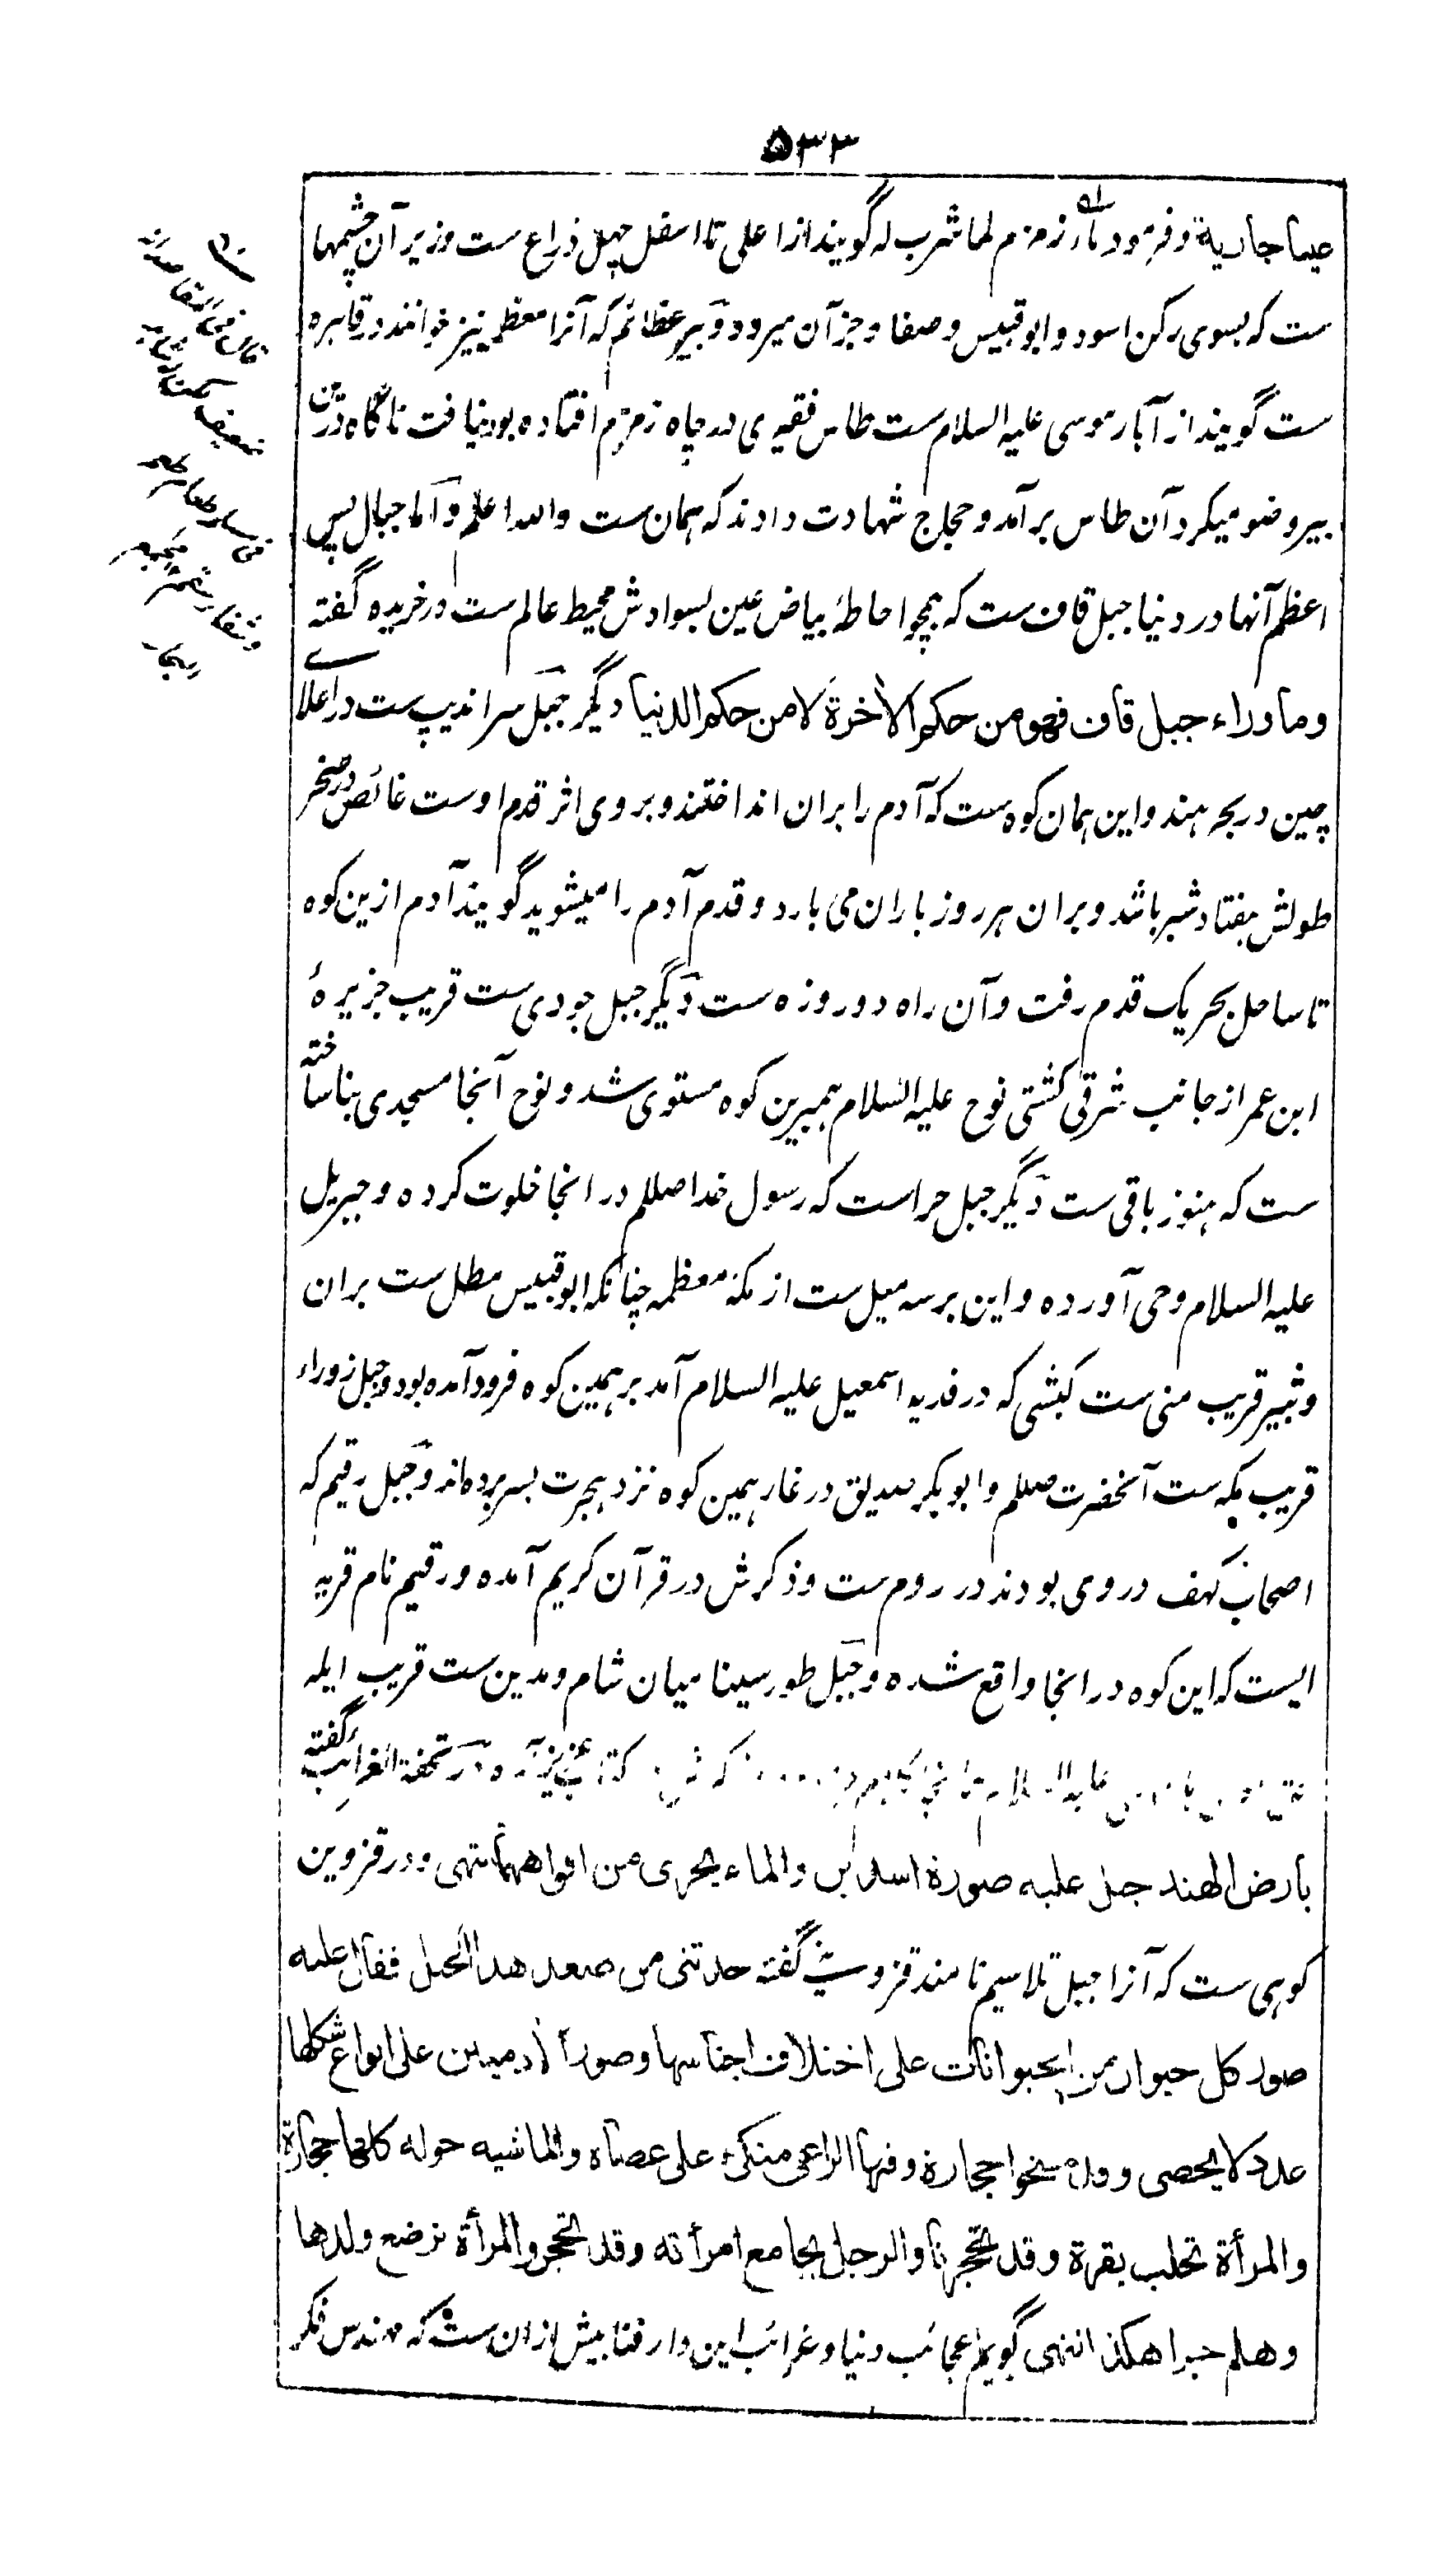 ۵۳۳
عینا جاریة و فرمود ماء زمزم لما شرب له گویند از اعلی تا اسفل چهل ذراع ست وزیر آن چشمها
ست که بسوی رکن اسود و ابوقبیس و صفا و جز آن میرود و بیر عظائم که آنرا معظمه نیز خوانند در قاهره
ست گویند از آبار موسی علیه السلام ست طاس فقیری در چاه زمزم افتاده بود نیافت ناگاه درین
بیر وضو میکرد آن طاس برآمد و حجاج شهادت دادند که همان ست والله اعلم و اما جبال پس
اعظم آنها در دنیا جبل قاف ست که همچو احاطهٔ بیاض عین بسوادش محیط عالم ست در خریده گفته
وما وراء جبل قاف فهو من حکم الآخرة لا من حکم الدنیا دیگر جبل سراندیپ ست در اعلای
چین در بحر هند و این همان کوه ست که آدم را بران انداختند و بروی اثر قدم اوست غائص در صخر
طولش هفتاد شبر باشد و بران هر روز باران می بارد و قدم آدم را میشوید گویند آدم ازین کوه
تا ساحل بحر یک قدم رفت و آن راه دو روزه ست دیگر جبل جودی ست قریب جزیرهٔ
ابن عمر از جانب شرقی کشتی نوح علیه السلام بهمبرین کوه مستوی شد و نوح آنجا مسجدی بنا ساخته
ست که هنوز باقی ست دیگر جبل حرا ست که رسول خدا صللم در انجا خلوت کرده و جبریل
علیه السلام وحی آورده و این بر سه میل ست از مکهٔ معظمه چنانکه ابوقبیس مطل ست بران
و ثبیر قریب منی ست کبشی که در فدیه اسمعیل علیه السلام آمد بر همین کوه فرود آمده بود و جبل زوراء
قریب مکه ست آنحضرت صللم و ابوبکر صدیق در غار همین کوه نزد هجرت بسر برده اند و جبل رقیم که
اصحاب کهف در وی بودند در روم ست و ذکرش در قرآن کریم آمده و رقیم نام قریه
ایست که این کوه در انجا واقع شده و جبل طور سینا میان شام و مدین ست قریب ایله
علیه السلام که در تحفة الغرائب گفته
بأرض الهند جبل علیه صورة اسدین والماء یجری من افواههما انتهی و در قزوین
کوهی ست که آنرا جبل تلاسیم نامند قزوینی گفته حدثنی من صعد هذا الجبل فقال علیه
صور کل حیوان من الحیوانات علی اختلاف اجناسها وصور الآدمیین علی انواع شکلها
عدد لا یحصی وقد مسخوا حجارة وفیها الراعی متکئ علی عصاه والماشیه حوله کلها حجارة
والمرأة تحلب بقرة وقد تحجرتا والرجل یجامع امرأته وقد تحجر والمرأة ترضع ولدها
وهلم جرا هکذا انتهی گویم عجائب دنیا و غرائب این دار فنا بیش ازان ست که مهندس فکر